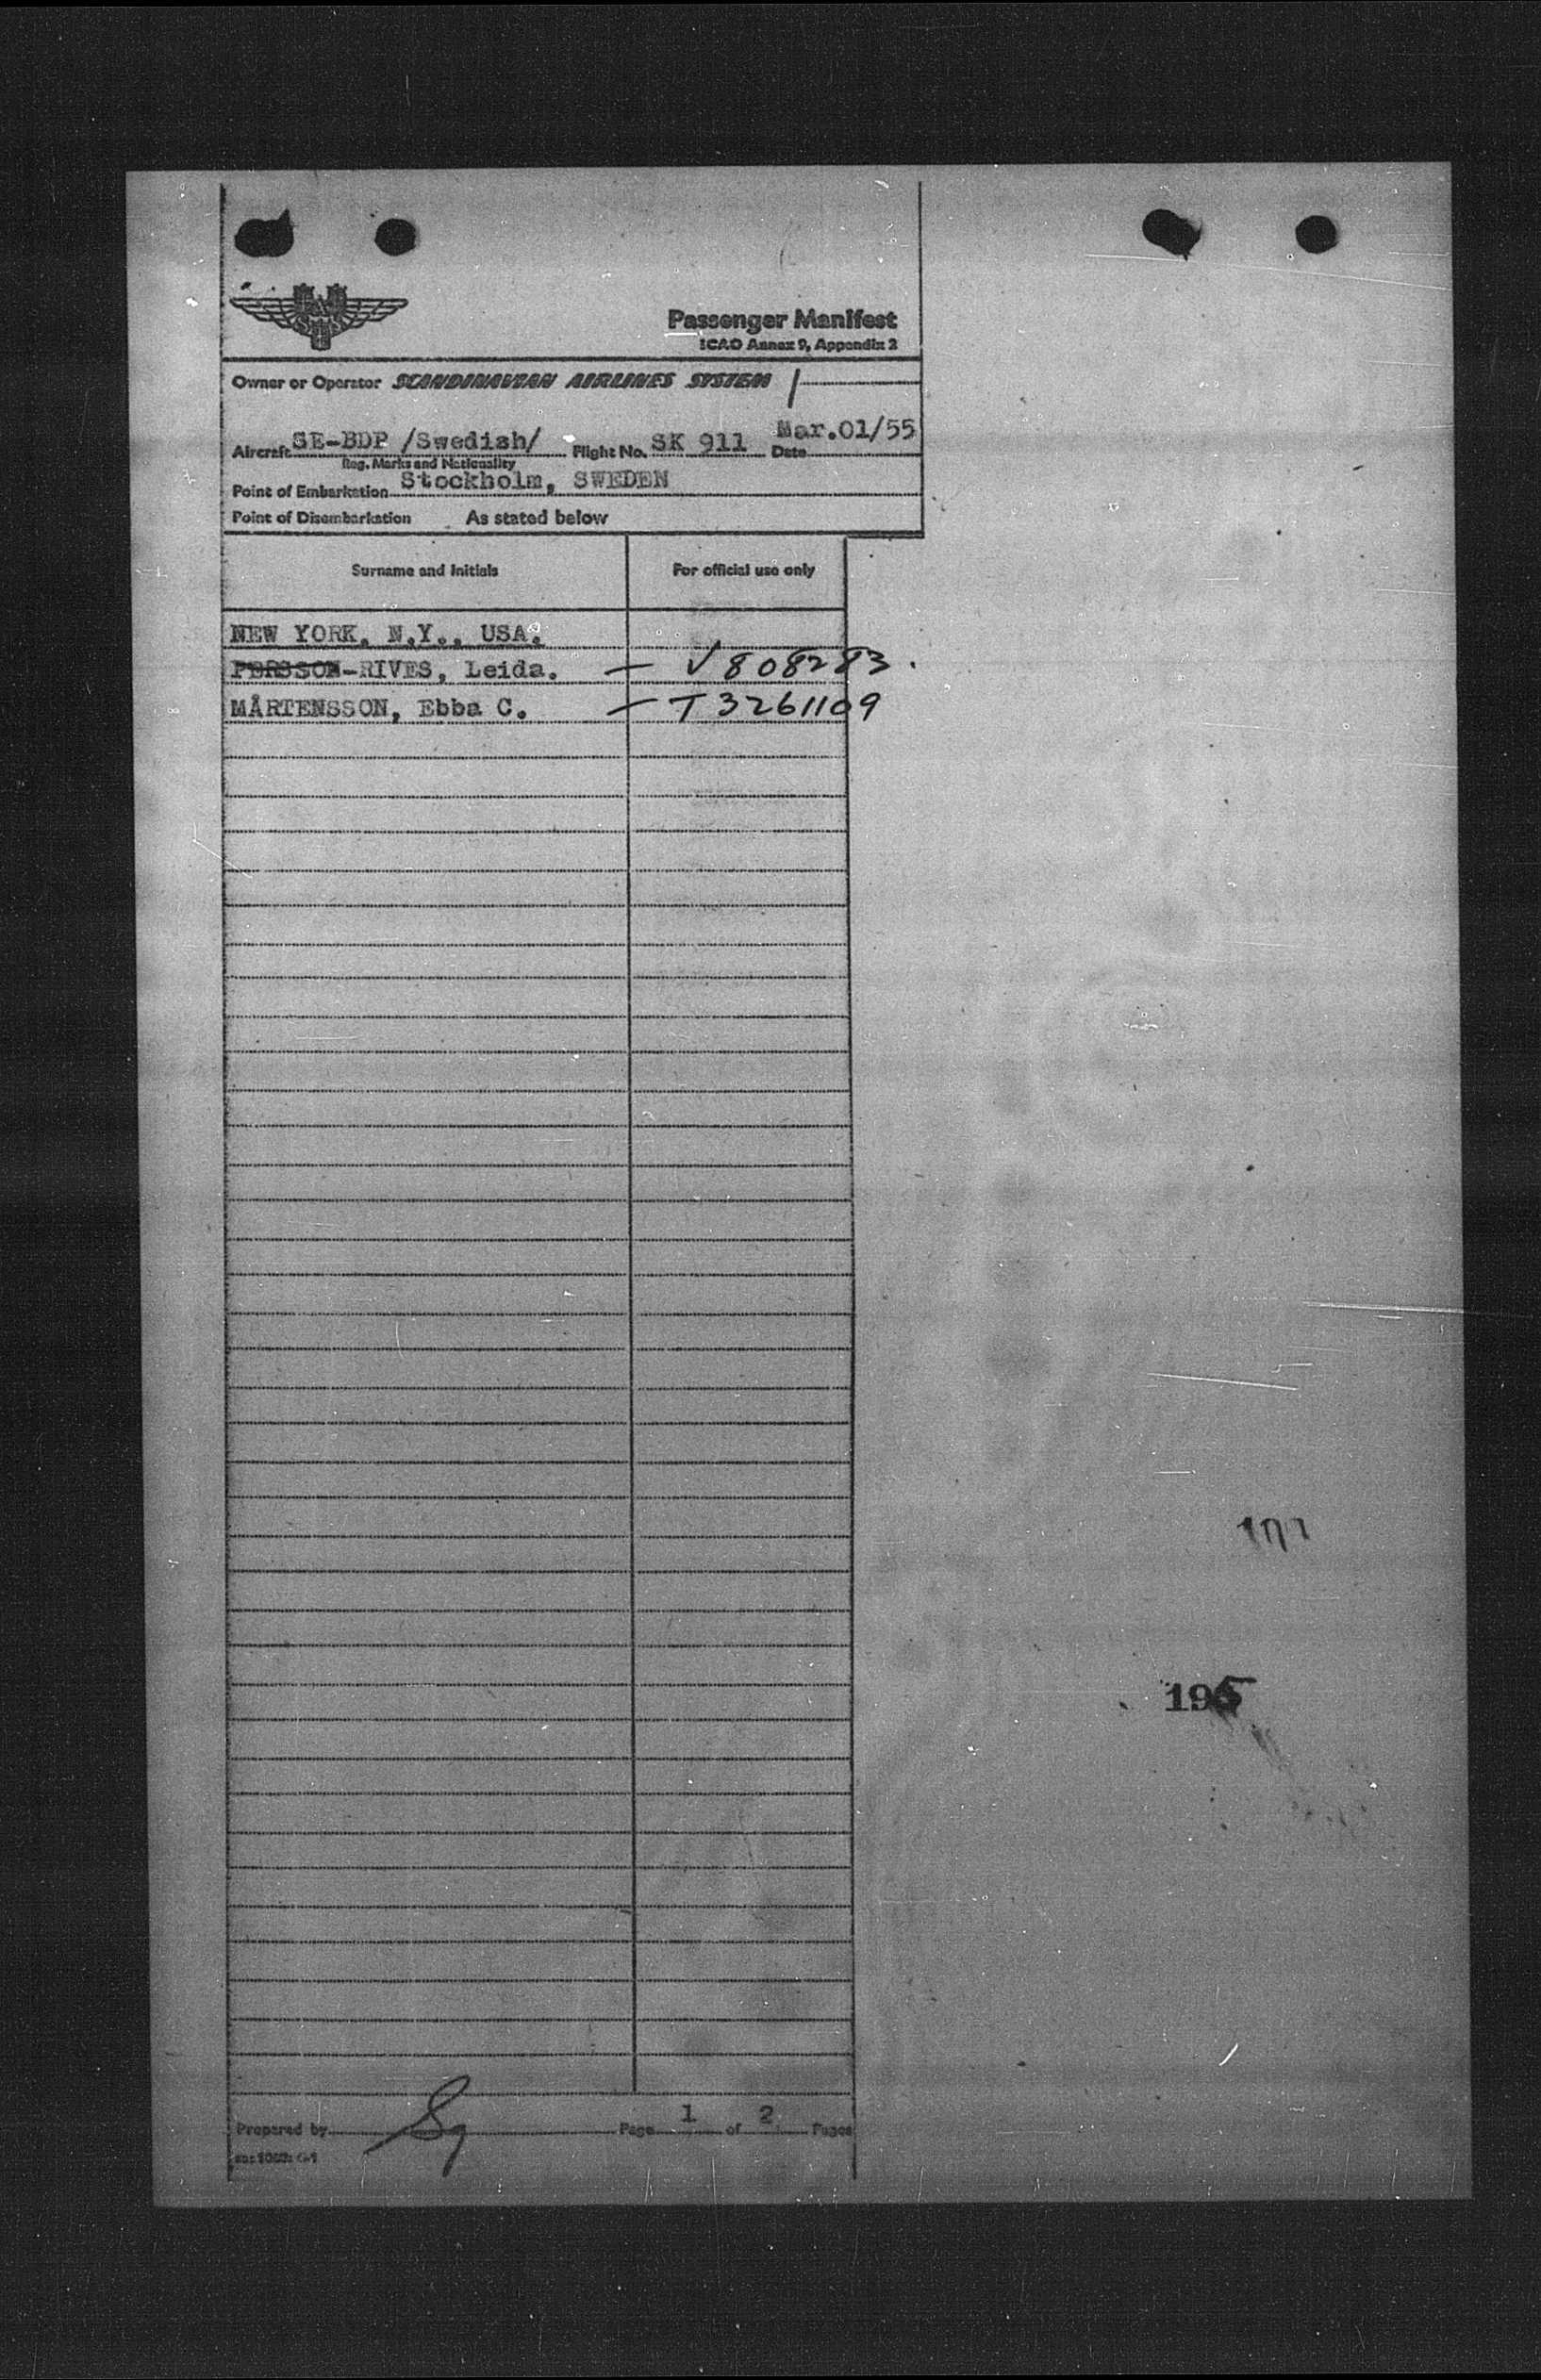 SAS
Passenger Manifest
ICAO Annex 9, Appendix 2
Owner or Operator SCANDINAVIAN AIRLINES SYSTEM /
Aircraft SE-BDP /Swedish/ Flight No. SK 911 Date Mar.01/55
Reg. Marks and Nationality
Point of Embarkation Stockholm, SWEDEN
Point of Disembarkation As stated below
Surname and Initials For official use only
NEW YORK, N.Y., USA.
PERSSON-RIVES, Leida. — V808283.
MÅRTENSSON, Ebba C. — T3261109
195
Prepared by Page 1 of 2 Pages